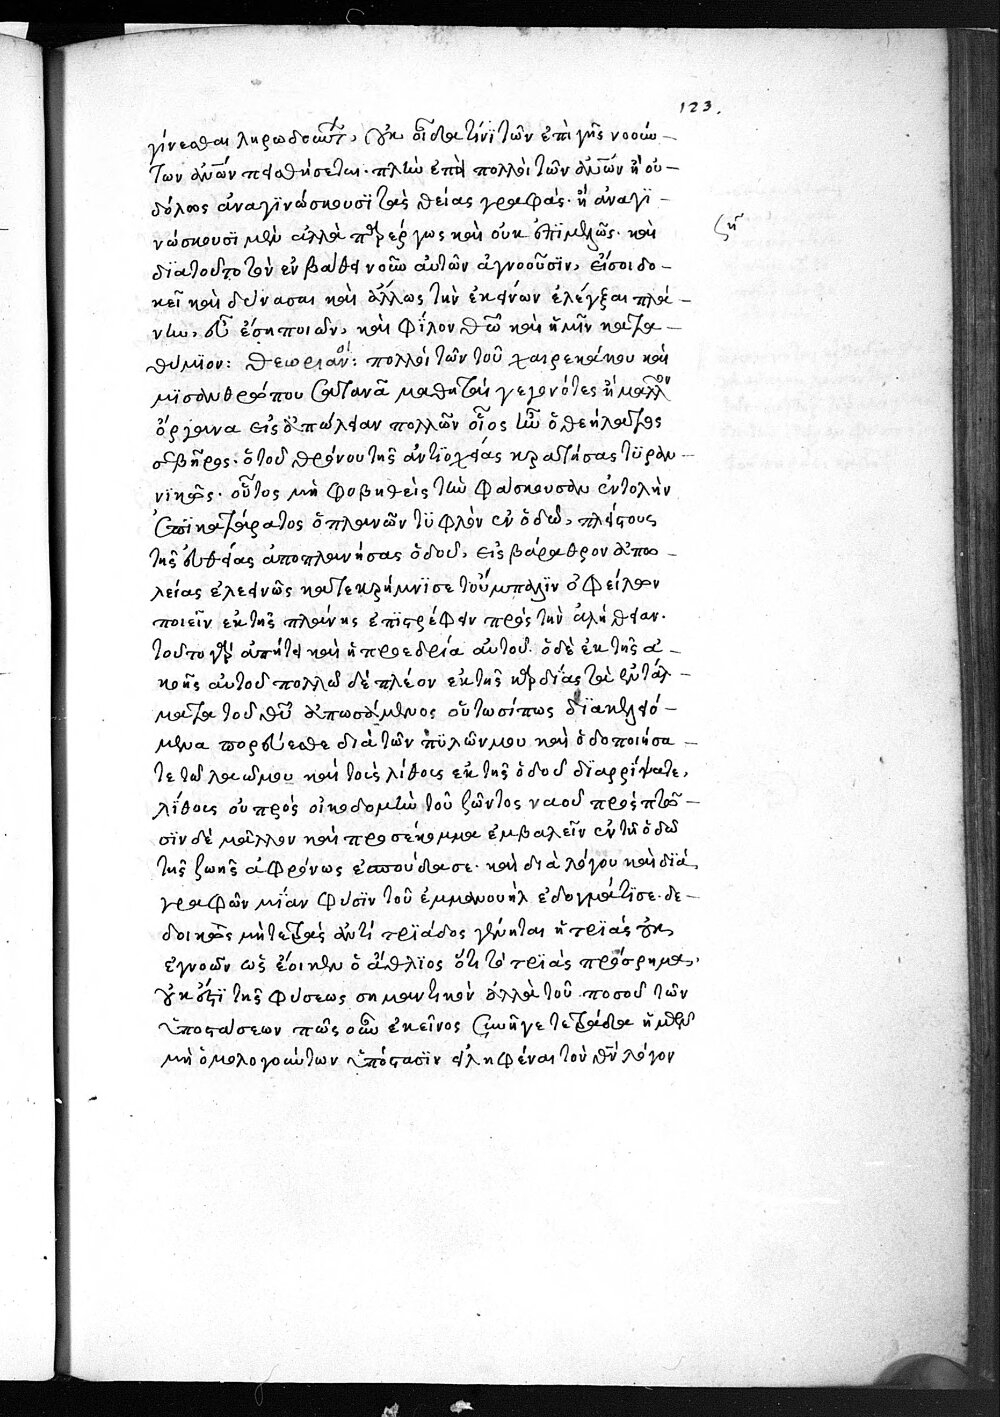 123.
γίνεσθαι ληρωδοῦντ, οὐκ οἶδα τίνι τῶν ἐπὶ γῆς νοούν-
των ἀνων πεισθήσεται· πλὴν ἐπεὶ πολλοὶ τῶν ἀνων ἢ οὐ-
δόλως ἀναγινώσκουσϊ τὰς θείας γραφάς· ἢ ἀναγϊ-
νώσκουσϊ μὲν ἀλλὰ παρέργως καὶ οὐκ ἐπϊμελῶς· καὶ
ζη
διατοῦτο τὸν ἐν βάθει νοῦν αὐτῶν ἀγνοοῦσϊν, εἴσοι δο-
κεῖ καὶ δύνασαι καὶ ἄλλως τὴν ἐκείνων ἐλέγξαι πλά-
νην, εὖ ἔσῃ ποιῶν, καὶ φίλον θῶ καὶ ἡμῖν κατα-
θύμϊον: Θεωριαν: πολλοὶ τῶν τοῦ χαιρεκάκου καὶ
μϊσανθρώπου σατανᾶ μαθηταὶ γεγονότες ἢ μᾶλλον
ὄργανα εἰς ἀπώλειαν πολλῶν οἷος ἦν ὁ θεήλατος
σεβῆρος· ὁ τοῦ θρόνου τῆς ἀντϊοχείας κρατήσας τυραν-
νϊκῶς· οὗτος μὴ φοβηθεὶς τὴν φάσκουσαν ἐντολὴν
ἐπϊκατάρατος ὁ πλανῶν τϋφλὸν ἐν ὁδῶ, πλείστους
τῆς εὐθείας ἀποπλανήσας ὁδοῦ, εἰς βάραθρον ἀπω-
λείας ἐλεεινῶς κατεκρήμνϊσε τοὔμπαλϊν ὀφείλων
ποιεῖν ἐκ τῆς πλάνης ἐπϊστρέφειν πρὸς τὴν ἀλήθειαν·
τοῦτο γὰρ ἀπῄτει καὶ ἡ προεδρία αὐτοῦ· ὁ δὲ ἐκ τῆς ἀ-
κοῆς αὐτοῦ πολλῶ δὲ πλέον ἐκ τῆς καρδίας τὰ ἐντάλ-
ματα τοῦ θυ ἀπωσάμενος οὑτωσίπως διακελευό-
μενα πορεύεσθε διὰ τῶν πϋλῶν μου καὶ ὁδοποιήσα-
τε τῶ λαῶ μου καὶ τοὺς λίθους ἐκ τῆς ὁδοῦ δϊαρρίψατε,
λίθους οὐ πρὸς οἰκοδομὴν τοῦ ζῶντος ναοῦ πρὸς πτῶ-
σϊν δὲ μᾶλλον καὶ πρόσκομμα ἐμβαλεῖν ἐν τῆ ὁδῶ
τῆς ζωῆς ἀφρόνως ἐσπούδασε· καὶ διὰ λόγου καὶ δϊὰ
γραφῶν μίαν φύσϊν τοῦ ἐμμανουὴλ ἐδογμάτϊσε· δε-
δοικὼς μὴ τετρὰς ἀντὶ τρϊάδος γένηται ἡ τρϊάς οὐκ
ἐγνοῶν ὡς ἔοικεν ὁ ἄθλϊος ὅτι τὸ τρϊὰς πρόσρημα,
οὐκ ἔστϊ τῆς φύσεως σημαντικὸν ἀλλὰ τοῦ ποσοῦ τῶν
ὑποστάσεων πῶς οὖν ἐκεῖνος συνῆγε τετράδα ἡμῶν
μὴ ὁμολογούντων ὑπόστασϊν εἰληφέναι τὸν θν λόγον